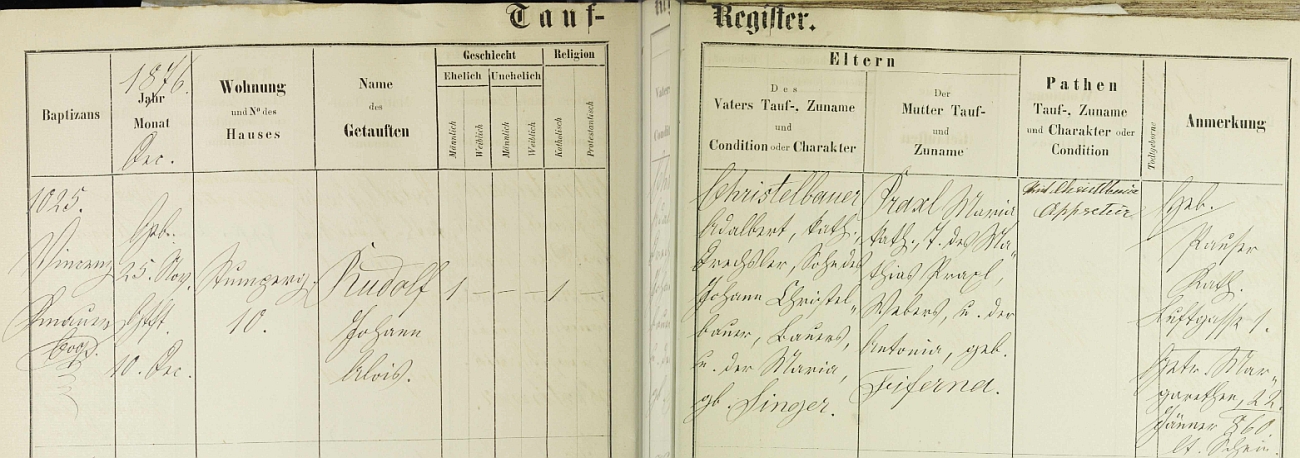 Tauf-
Register.
Baptizans
1876.
Jahr
Monat
Dec.
Wohnung
und Nº des
Hauses
Name
des
Getauften
Geschlecht
Ehelich
Unehelich
Männlich
Weiblich
Männlich
Weiblich
Religion
Katholisch
Protestantisch
Eltern
Des
Vaters Tauf-, Zuname
und
Condition oder Charakter
Der
Mutter Tauf-
und
Zuname
Pathen
Tauf-, Zuname
und Charakter oder
Condition
Todtgeborne
Anmerkung
1025.
Vincenz
Coop.
Geb.
25. Nov.
Gtft.
10. Dec.
Stumperg.
10.
Rudolf
Johann
Alois.
1 — — — 1 —
Christelbauer
Adalbert, kath.,
Drechsler, Sohn des
Johann Christel-
bauer, Bauers,
u. der Maria,
gb. Singer.
Praxl Maria
kath., T. des Ma-
thias Praxl,
Webers, u. der
Antonia, geb.
Fiferna.
Christelbauer
Appreteur
Geb.
Kath.
Luftgasse 1.
Getr. Mar-
garethen, 22.
Jänner 860
lt. Schein.